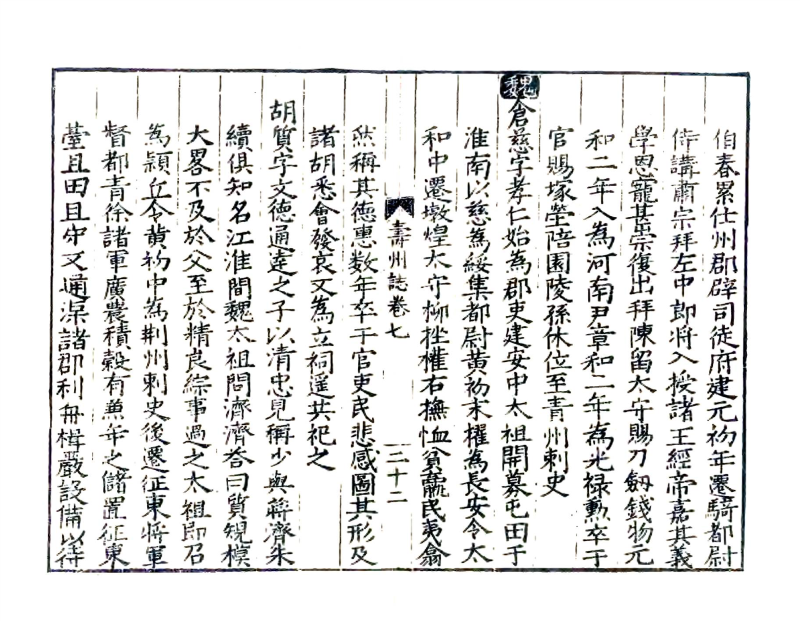 伯春累仕州郡辟司徒府建元初年遷騎都尉
侍講肅宗拜左中郎將入授諸王經帝嘉其義
學恩寵甚崇復出拜陳留太守賜刀劔錢物元
和二年入為河南尹章和二年為光禄勲卒于
官賜塚塋陪園陵孫休位至青州刺史
魏
倉慈字孝仁始為郡吏建安中太祖開募屯田于
淮南以慈為綏集都尉黄初末擢為長安令太
和中遷燉煌太守抑挫權右撫恤貧羸民夷翕
壽州誌卷七
二十二
然稱其德惠数年卒于官吏民悲感圖其形及
諸胡悉會發哀又為立祠遥共祀之
胡質字文德通達之子以清忠見稱少與蔣濟朱
續俱知名江淮間魏太祖問濟濟荅曰質規模
大畧不及於父至於精良綜事過之太祖即召
為頴丘令黄初中為荆州刺史後遷征東將軍
督都青徐諸軍廣農積穀有兼年之儲置征東
臺且田且守又通渠諸郡利舟楫嚴設備以待